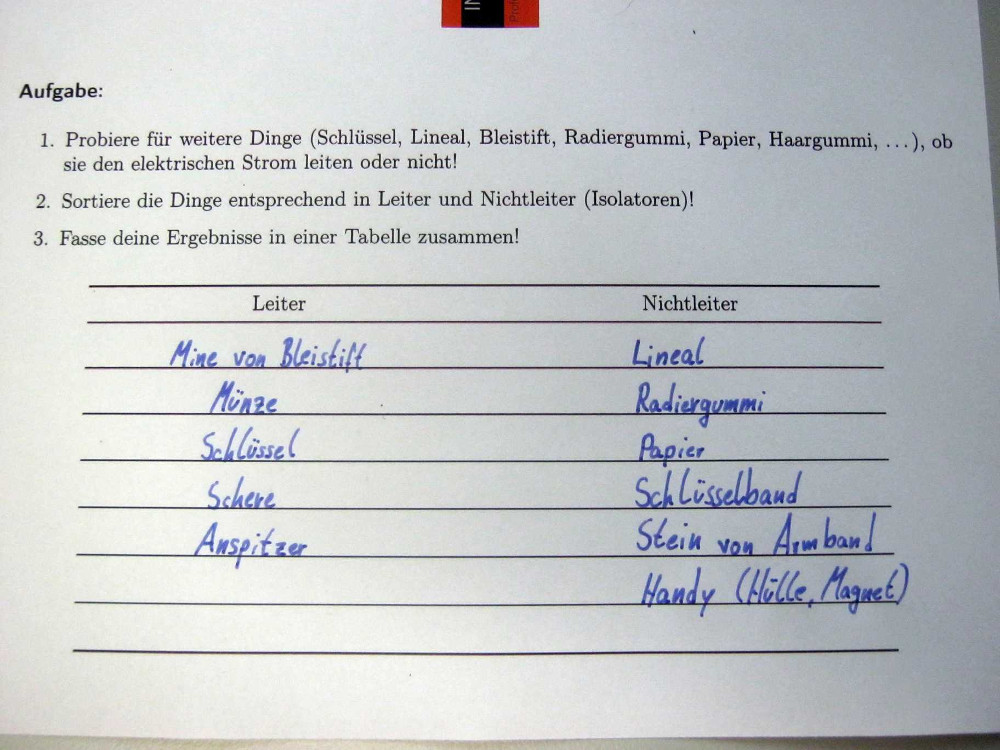 Aufgabe:
1. Probiere für weitere Dinge (Schlüssel, Lineal, Bleistift, Radiergummi, Papier, Haargummi, ...), ob
sie den elektrischen Strom leiten oder nicht!
2. Sortiere die Dinge entsprechend in Leiter und Nichtleiter (Isolatoren)!
3. Fasse deine Ergebnisse in einer Tabelle zusammen!
Leiter Nichtleiter
Mine von Bleistift Lineal
Münze Radiergummi
Schlüssel Papier
Schere Schlüsselband
Anspitzer Stein von Armband
Handy (Hülle, Magnet)